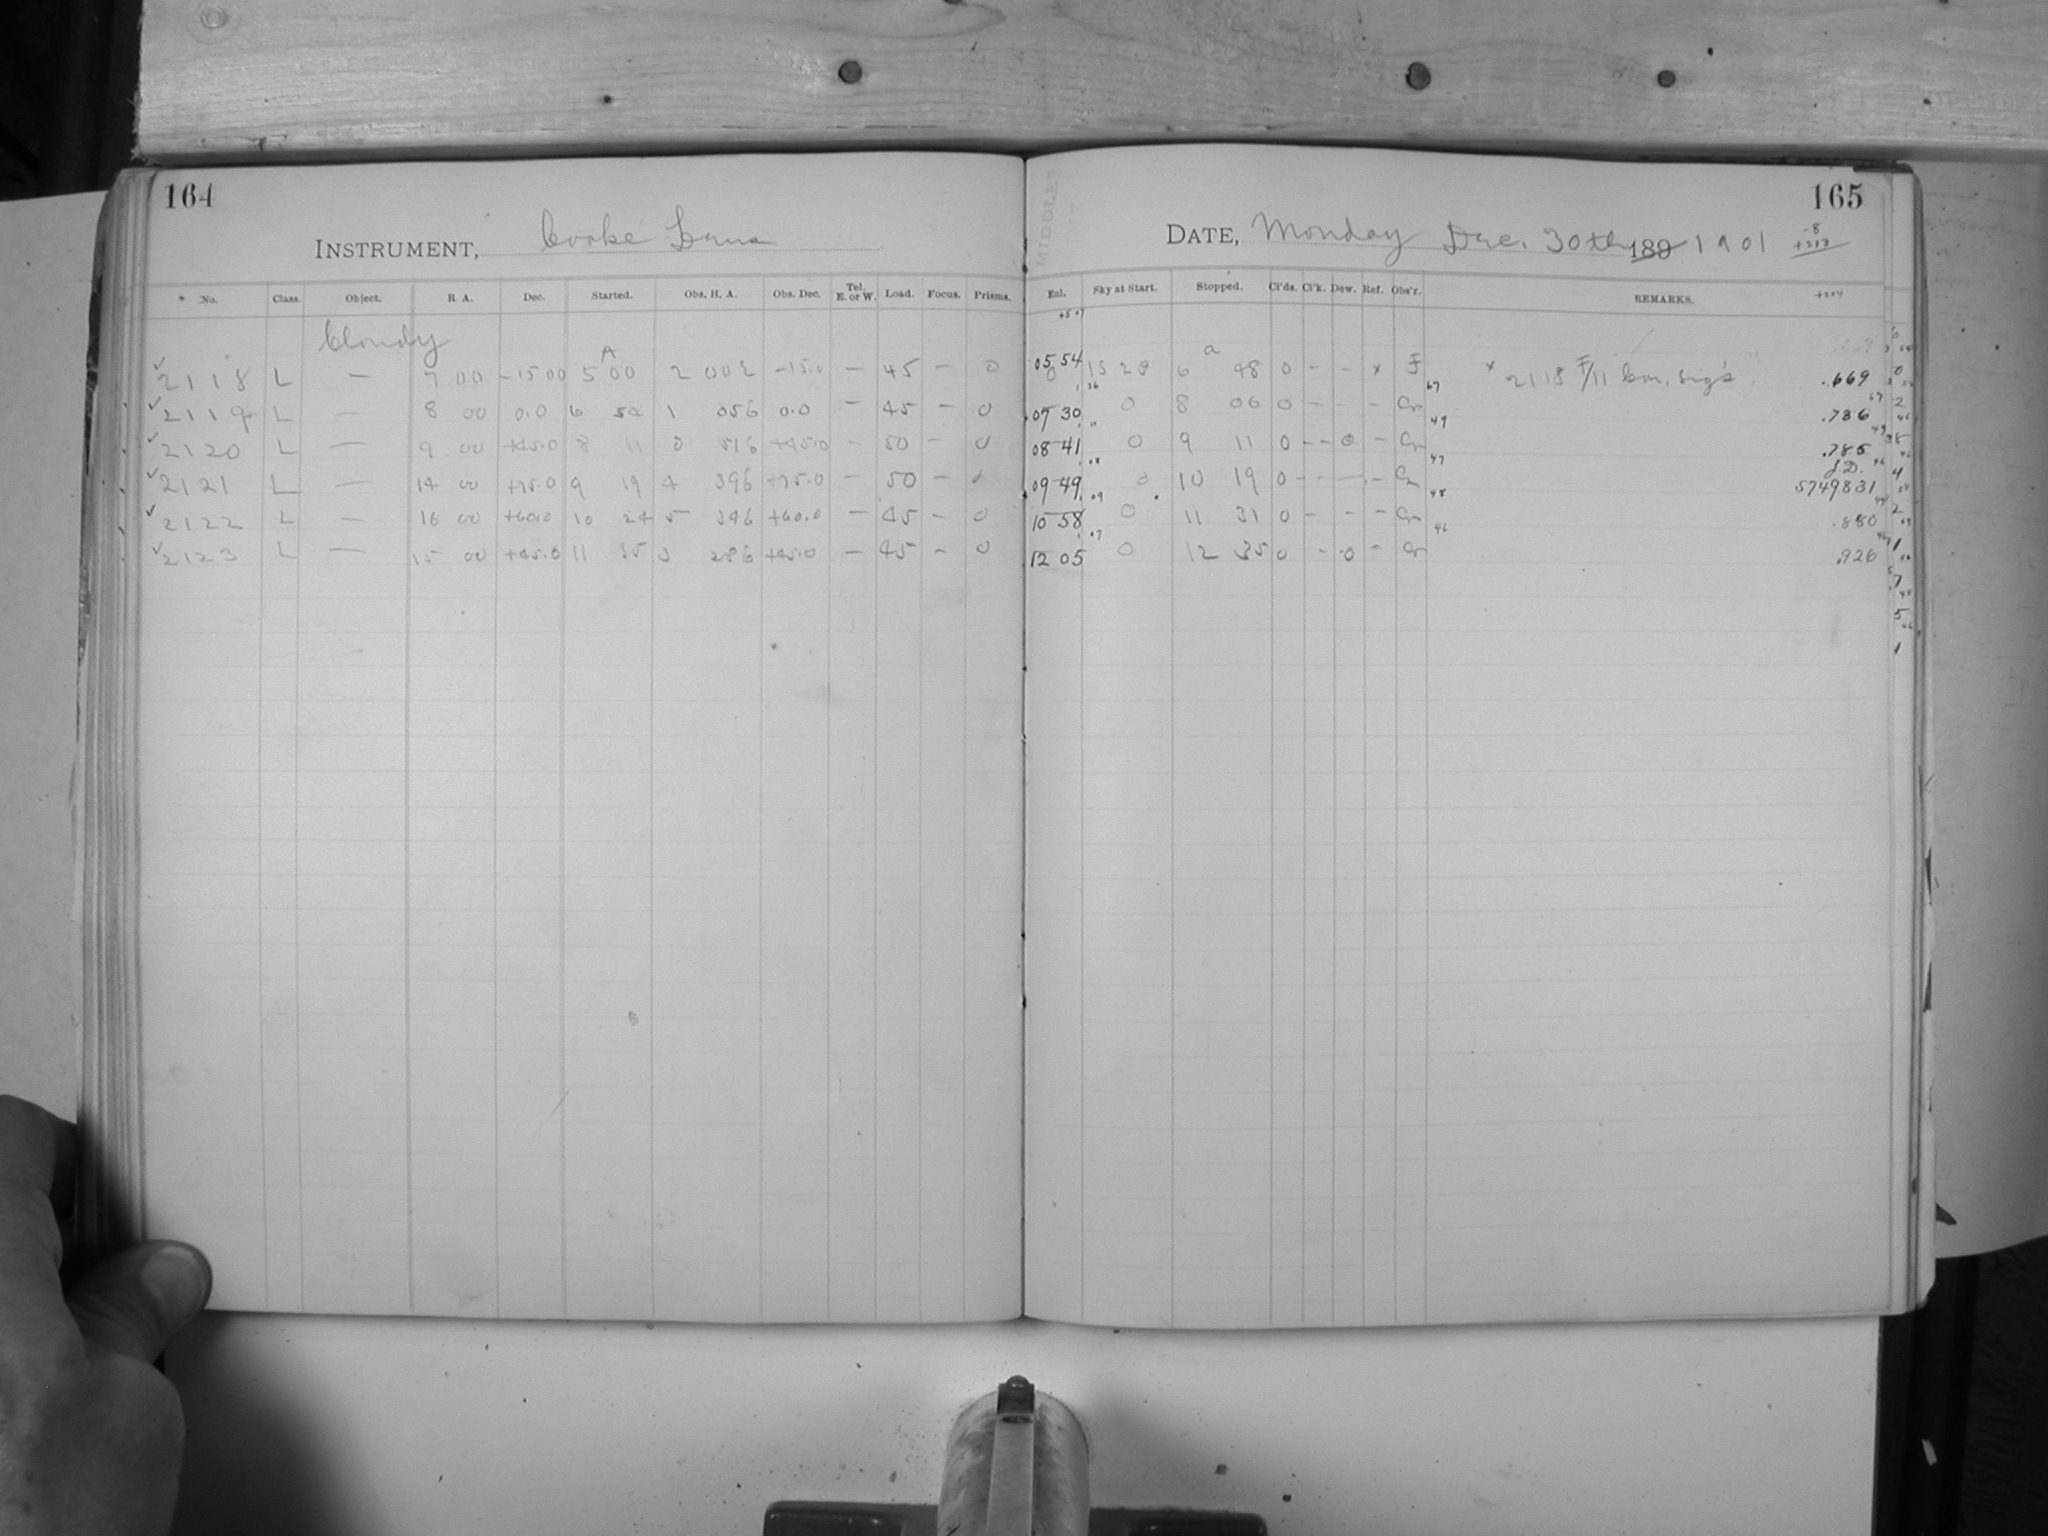 164
INSTRUMENT, Cooke Lens
* No. Class. Object. R. A. Dec. Started. Obs. H. A. Obs. Dec. Tel. E. or W. Load. Focus. Prisms.
Cloudy
2118 L — 7 00 -1500 5 A 00 2 00 E -15.0 — 45 — 0
2119 L — 8 00 0.0 6 1 056 0.0 — 45 — 0
2120 L — 9 00 +45.0 8 11 0 516 +45.0 — 50 — 0
2121 L — 14 00 +75.0 9 19 4 396 +75.0 — 50 —
2122 L — 16 00 +60.0 10 24 5 346 +60.0 — 45 — 0
2123 L — 15 00 +45.0 11 35 3 286 +45.0 — 45 — 0
165
DATE, Monday Dec. 30th 189 1901
-8
+213
Exl. Sky at Start. Stopped. Cl'ds. Cl'k. Dew. Ref. Obs'r. REMARKS.
+204
+507
05 54 15 28 6 a 48 0 - - x F x 2118 F/11 Com. Sig's .669
07 30 0 8 06 0 - - - Cr .736
08 41 0 9 11 0 - - 0 - Cr .785
J.D.
09 49 0 10 19 0 - - - - Cr 5749831
10 58 0 11 31 0 - - - Cr .880
12 05 0 12 35 0 - 0 - Cr .926